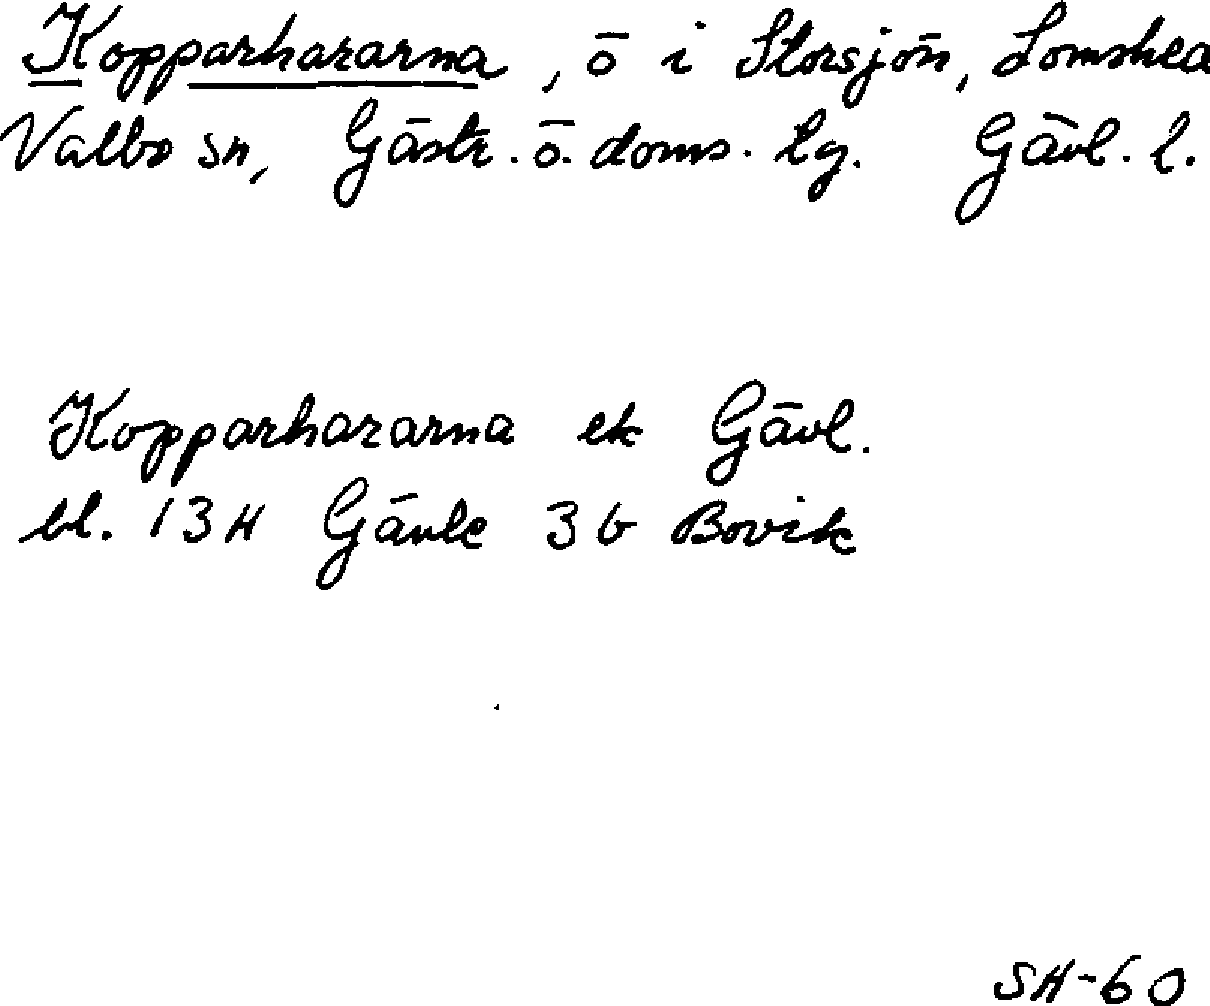 Kopparhararna, ö i Storsjön,
Valbo sn, Gästr. ö. doms. lg. Gävl. l.
Kopparhararna ek Gävl.
bl. 13H Gävle 3b Bovik
SH-60